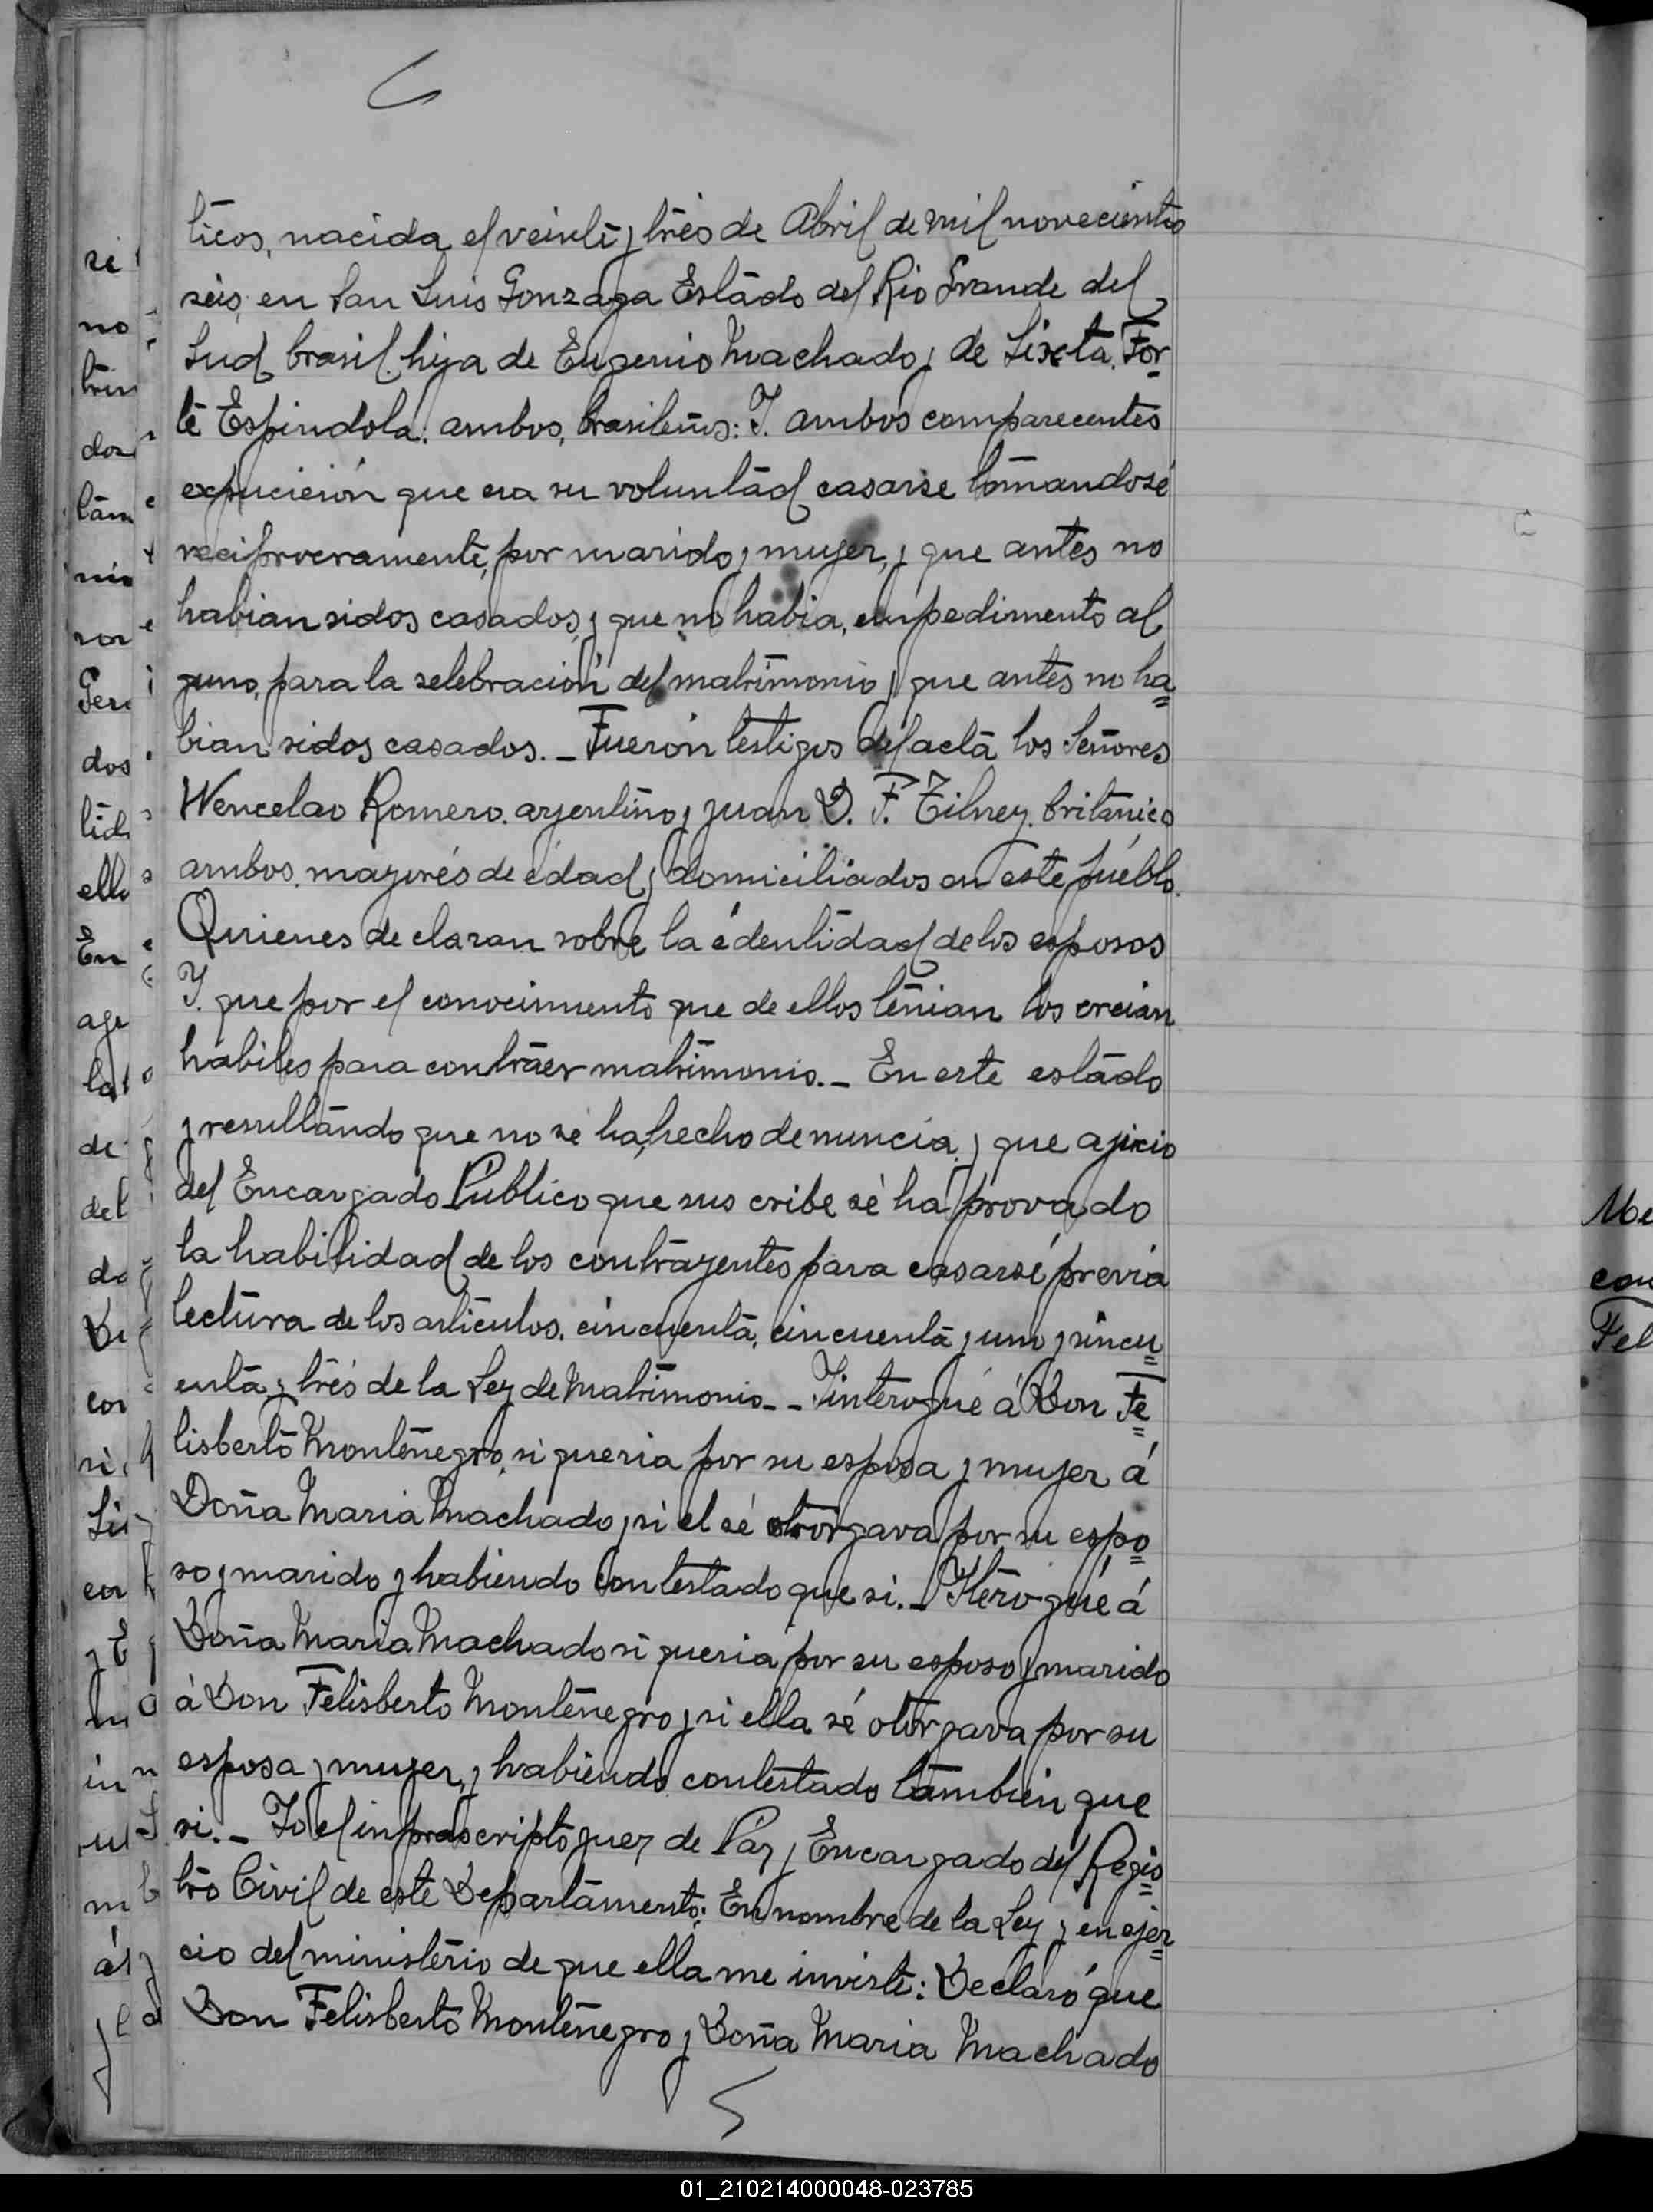 ticos, nacida el veinte y trés de Abril de mil novecientos
séis, en San Luis Gonzaga Estado del Rio Grande del
Sud brasil. hija de Eugenio Machado y de Sixta. For-
te Espindola: ambos, brasileños: Y. ambos comparecentes
expucierón que era su voluntad casarse tomandosé
reciprocramente, por marido y mujer, y que antes no
habian sidos casados, y que no habia, empedimento al
guno, para la selebración del matrimonio y que antes no ha=
bian sidos casados. _ Fuerón testigos del acta los Señores
Wencelao Romero. argentino y Juan D. F. Tilney. britanico
ambos. mayorés de edad y domiciliados en este puéblo.
Quienes de claran sobre la édentidad de los esposos
Y. que por el conocimiento que de ellos tenian los creian
habiles para contraer matrimonio. _ En este estado
y resultando que no se ha hecho denuncia. y que ajicio
del Encargado Publico que sus cribe sé ha provado
la habilidad de los contrayentes para casarsé previa
lectura de los articulos. cincuenta, cincuenta y uno y sincu=
enta y trés de la Ley de Matrimonio _ _ Y interogué á Don Fe=
lisberto Montenegro, si queria por su esposa y mujer á
Doña Maria Machado y si el sé otorgava por su espo=
so y marido y habiendo contestado que si. _ Yterogué á
Doña Maria Machado si queria por su esposo y marido
á Don Felisberto Montenegro y si ella sé otorgava por su
esposa y mujer, y habiendo contestado tambien que
si. _ Yo el infrascripto Juez de Paz y Encargado del Regis=
tro Civil de este Departamento: En nombre de la Ley y en ejer=
cio del ministerio de que ella me inviste: Declaró que
Don Felisberto Montenegro y Doña Maria Machado
01_210214000048-023785